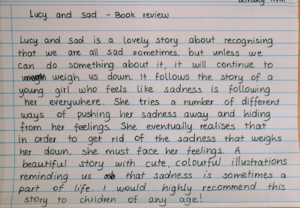 Lucy and Sad - Book review
Lucy and Sad is a lovely story about recognising
that we are all sad sometimes, but unless we
can do something about it, it will continue to
weigh us down. It follows the story of a
young girl who feels like sadness is following
her everywhere. She tries a number of different
ways of pushing her sadness away and hiding
from her feelings. She eventually realises that
in order to get rid of the sadness that weighs
her down, she must face her feelings. A
beautiful story with cute, colourful illustrations
reminding us that sadness is sometimes a
part of life. I would highly recommend this
story to children of any age!